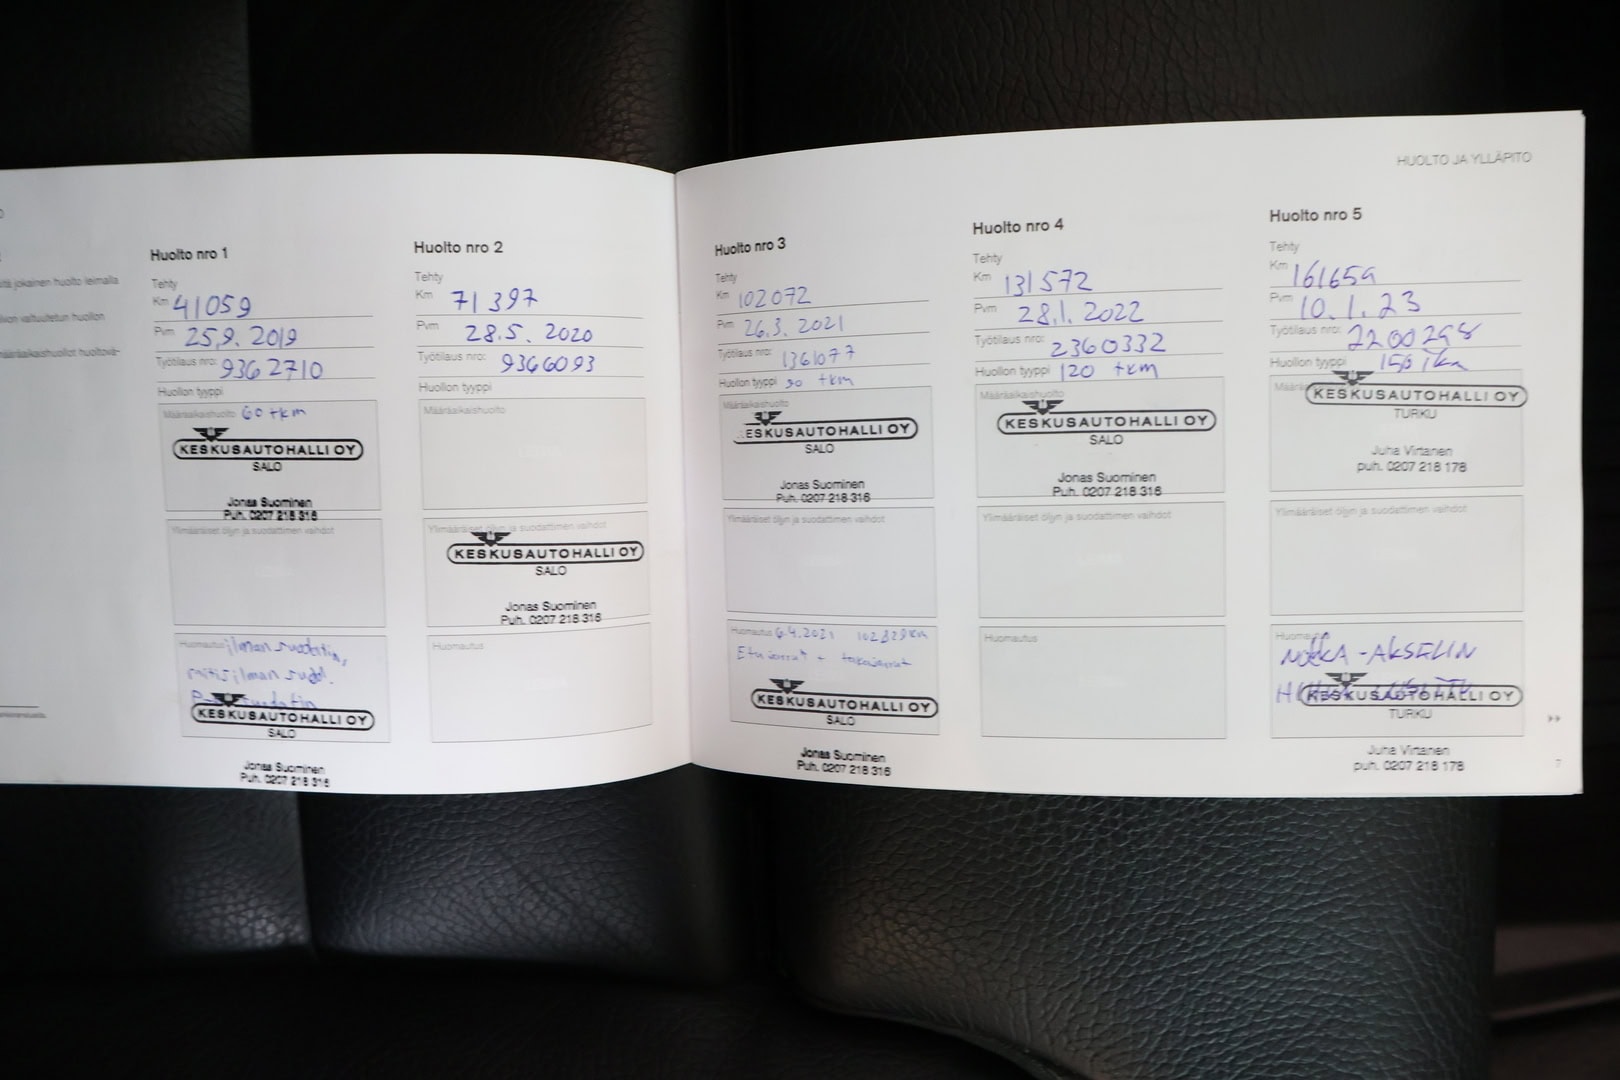 tä jokainen huolto leimalla
valtuutetun huollon
määräaikaishuollot
Huolto nro 1
Tehty
Km 41059
Pvm 25.9.2019
Työtilaus nro: 9362710
Huollon tyyppi
Määräaikaishuolto 60 tkm
KESKUSAUTOHALLI OY
SALO
Jonas Suominen
Puh. 0207 218 316
Ylimääräiset öljyn ja suodattimen vaihdot
Huomautus ilman suodatin,
KESKUSAUTOHALLI OY
SALO
Jonas Suominen
Puh. 0207 218 316
Huolto nro 2
Tehty
Km 71397
Pvm 28.5.2020
Työtilaus nro: 9366093
Huollon tyyppi
Määräaikaishuolto
Ylimääräiset öljyn ja suodattimen vaihdot
KESKUSAUTOHALLI OY
SALO
Jonas Suominen
Puh. 0207 218 316
Huomautus
Huolto nro 3
Tehty
Km 102072
Pvm 26.3.2021
Työtilaus nro: 1361077
Huollon tyyppi 90 tkm
Määräaikaishuolto
ESKUSAUTOHALLI OY
SALO
Jonas Suominen
Puh. 0207 218 316
Ylimääräiset öljyn ja suodattimen vaihdot
Huomautus 6.4.2021 102829km
Etujarrut + takajarrut
KESKUSAUTOHALLI OY
SALO
Jonas Suominen
Puh. 0207 218 316
HUOLTO JA YLLÄPITO
Huolto nro 4
Tehty
Km 131572
Pvm 28.1.2022
Työtilaus nro: 2360332
Huollon tyyppi 120 tkm
Määräaikaishuolto
KESKUSAUTOHALLI OY
SALO
Jonas Suominen
Puh. 0207 218 316
Ylimääräiset öljyn ja suodattimen vaihdot
Huomautus
Huolto nro 5
Tehty
Km 161659
Pvm 10.1.23
Työtilaus nro: 2200298
Huollon tyyppi 150 Tkm
KESKUSAUTOHALLI OY
TURKU
Juha Virtanen
puh. 0207 218 178
Ylimääräiset öljyn ja suodattimen vaihdot
NOKKA-AKSELIN
KESKUSAUTOHALLI OY
TURKU
Juha Virtanen
puh. 0207 218 178
7